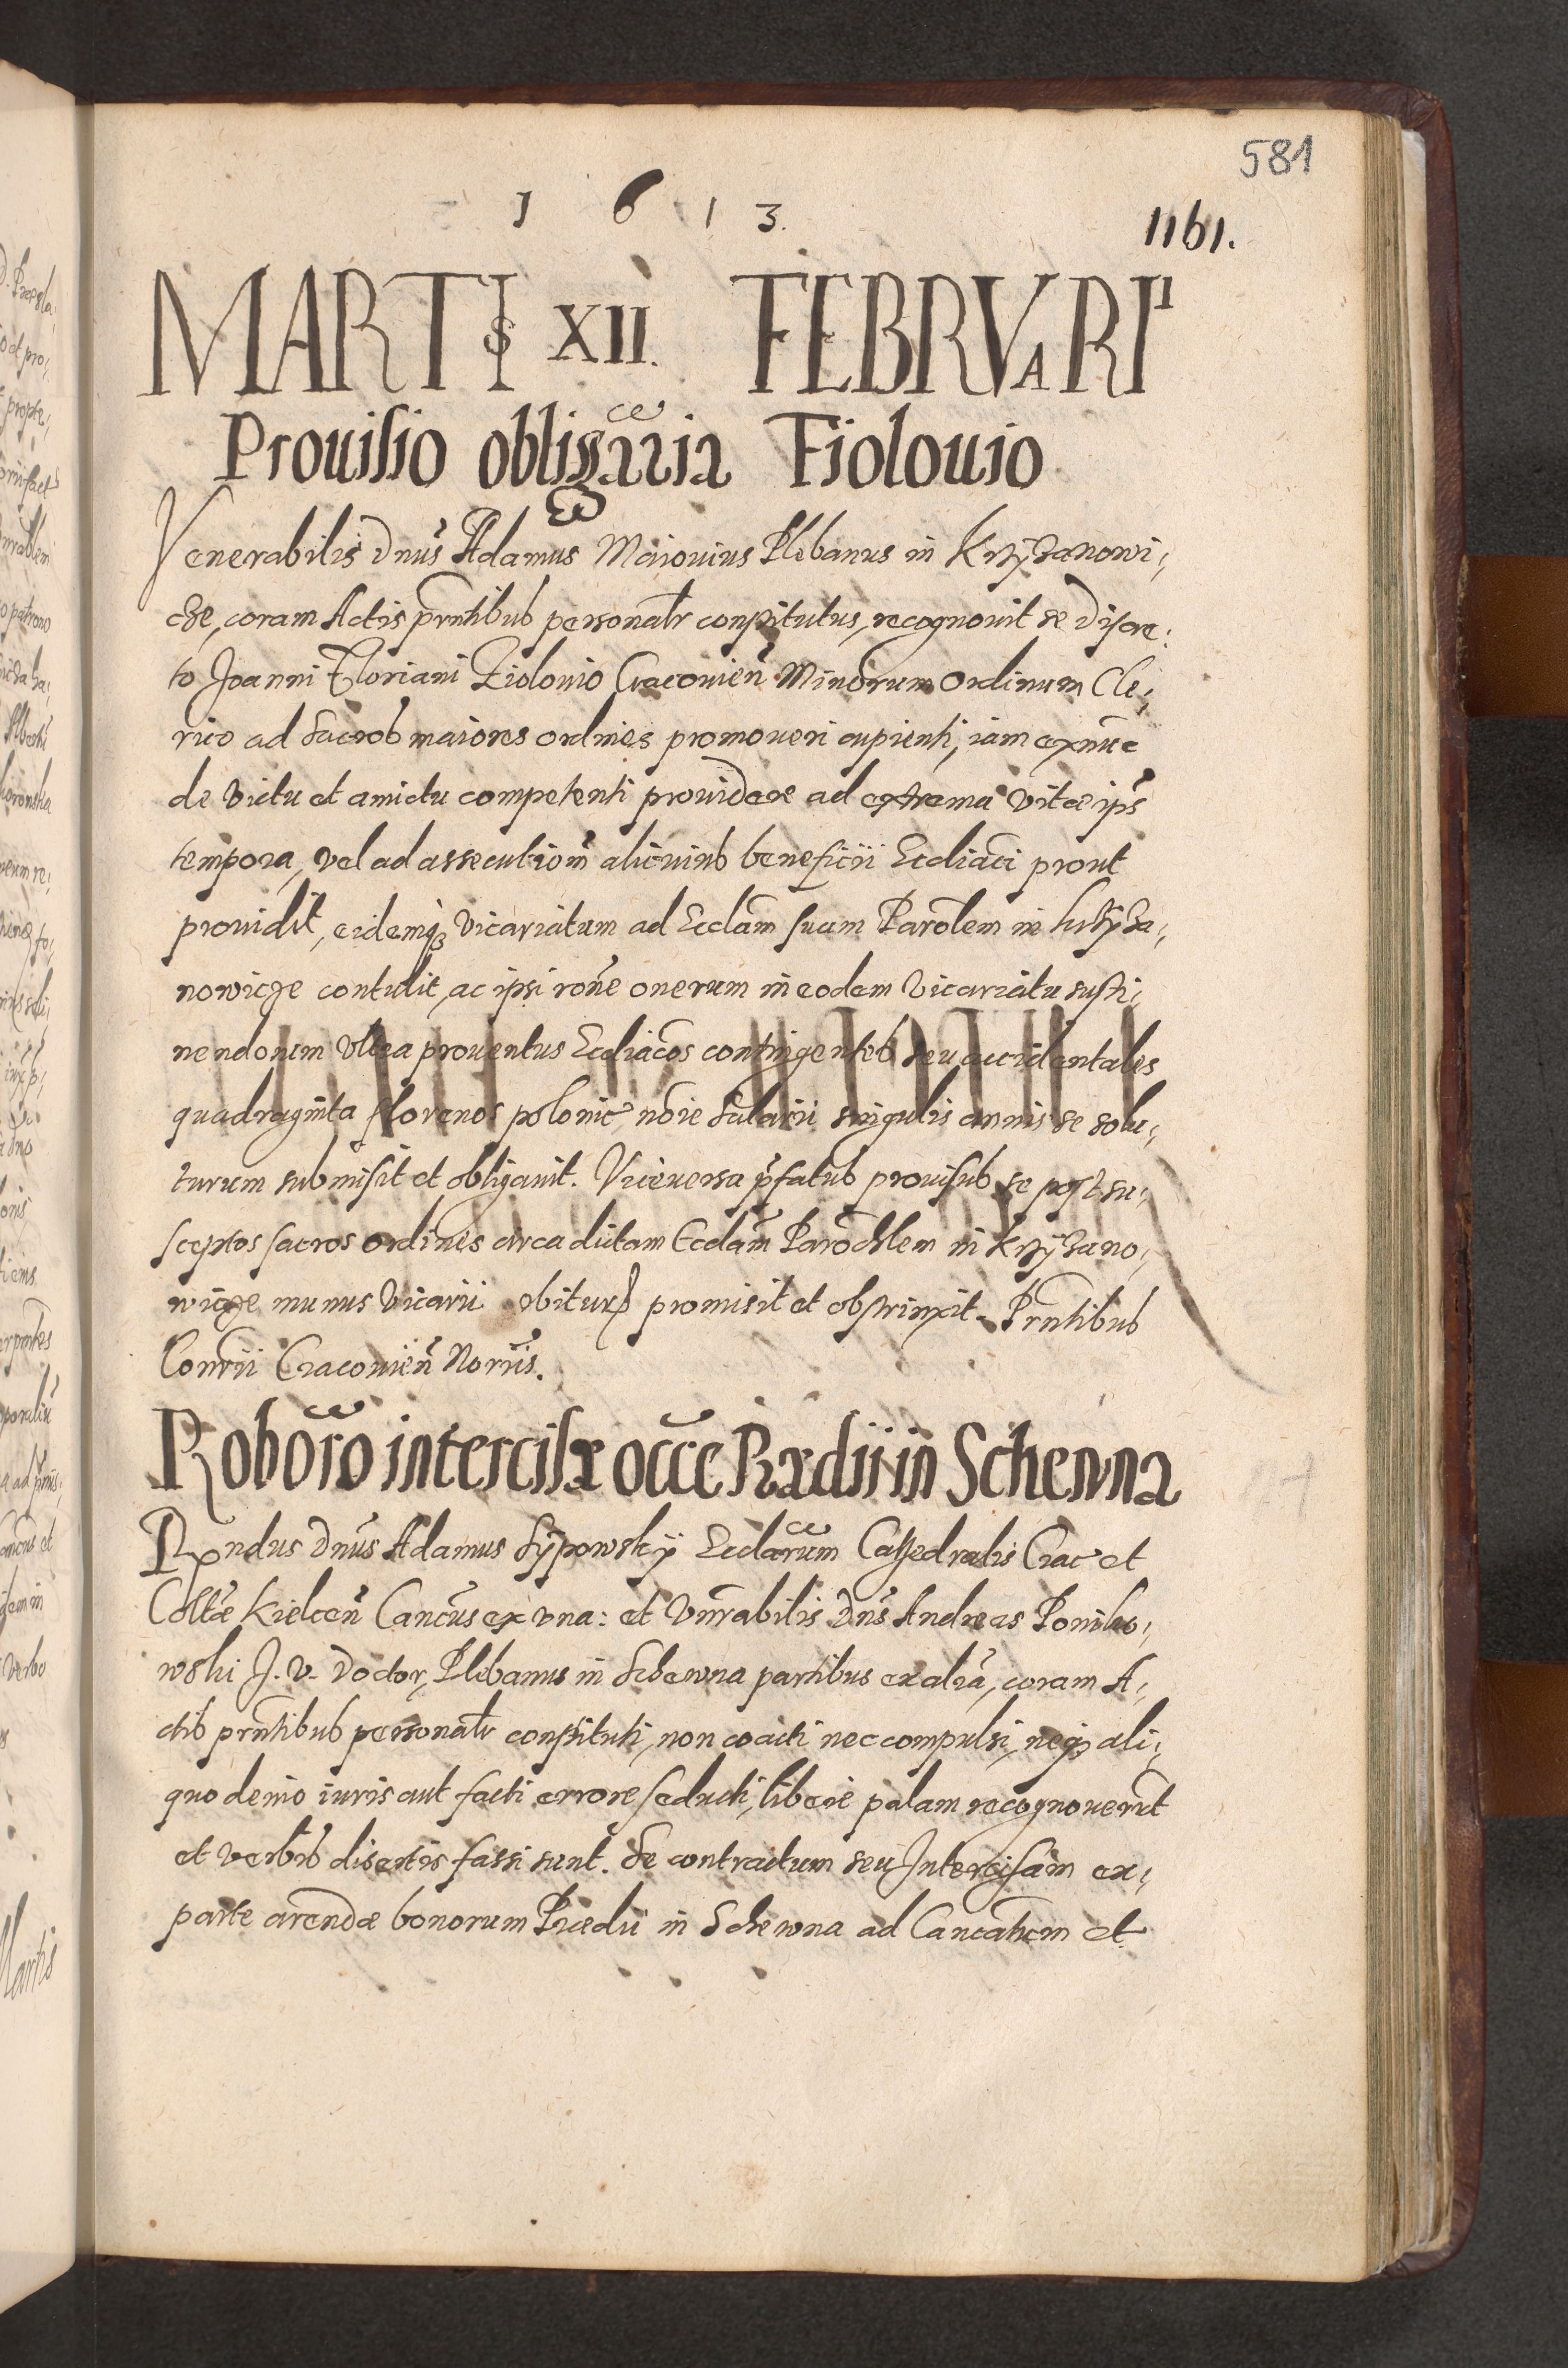 581
1 6 1 3.
1161.
MARTIS XII. FEBRVARII
Prouisio obligãria Fiolouio
Venerabilis Dnũs Adamus Maiouius Plebanus in Krzyżanowi¡
cze, coram Actis prñtibus personalr constitutus, recognouit se discre¡
to Joanni Floriani Fiolouio Cracouieñ Minorum Ordinum Cle¡
rico ad Sacros maiores ordines promoueri cupienti, iam exnũc
de victu et amictu competenti prouidere ad extrema vitæ ips̃
tempora, vel ad assecutionẽ alicuius beneficii Ecclãci prout
prouidit, eidemq; vicariatum ad Ecclãm suam Parolem in Krzyża¡
nowicze contulit, ac ipsi rõne onerum in eodem Vicariatu susti¡
nendorum vltra prouentus Ecclãcos contingentes seu accidentales
quadraginta florenos polonic noie Salarii singulis annis se solu¡
turum submisit et obligauit. Viceuersa p̃fatus prouisus se post su¡
sceptos sacros ordines circa dictam Ecclãm Parochlem in Krzyżano¡
wicze munus Vicarii obiturũ promisit et obstrinxit. Prñtibus
Consrii Cracouieñ Norÿs.
Roborõ intercisæ occẽ Prædii in Schewna
Rndus Dnũs Adamus Sypowsky Ecclarum Cathedralis Crac et
Colltæ Kielceñ Cancũs ex vna: et Vnrabilis Dnũs Andreas Poniko¡
wski J. V. Doctor, Plebanus in Schewna partibus ex aliã, coram A¡
ctis prñtibus personalr constituti, non coacti nec compulsi, neq; ali¡
quo demo iuris aut facti errore seducti, libere palam recognouerũt
et verbis disertis fassi sunt. Se contractum seu Intercisam ex¡
parte arendæ bonorum Prædii in Schewna ad Cancãtum et